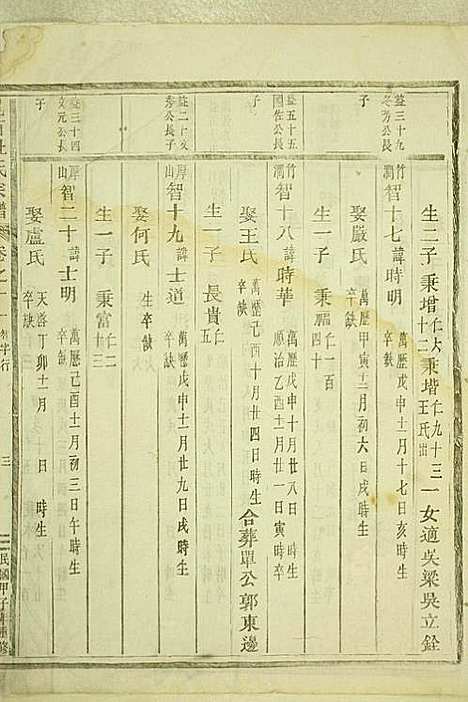 生二子 秉增仁大十二 秉堦仁九十三王氏出 一女適吳梁吳立銓
益三十九
冬芳公長子
竹澗 智十七諱時明 萬歷戊申十一月十七日亥時生 卒缺
娶嚴氏 萬歷甲寅十二月初六日戌時生 卒缺
生一子 秉 仁一百四十
益五十五
國佐公長子
竹澗 智十八諱時華 萬歷戊申十月廿八日辰時生 順治乙酉十二月廿一日寅時卒
娶王氏 萬歷己酉十月廿四日時生 卒缺 合葬單公郭東邊
生一子 長貴仁五
益二十
秀公長子
厚山 智十九諱士道 萬歷戊申十二月廿九日戌時生 卒缺
娶何氏 生卒缺
生一子 秉富仁二十三
益三十四
文元公長子
厚山 智二十諱士明 萬歷己酉十二月初三日午時生 卒缺
娶盧氏 天啓丁卯十一月 日 時生 卒缺
氏宗譜 卷之十一 智字行 三 民國甲子年重修